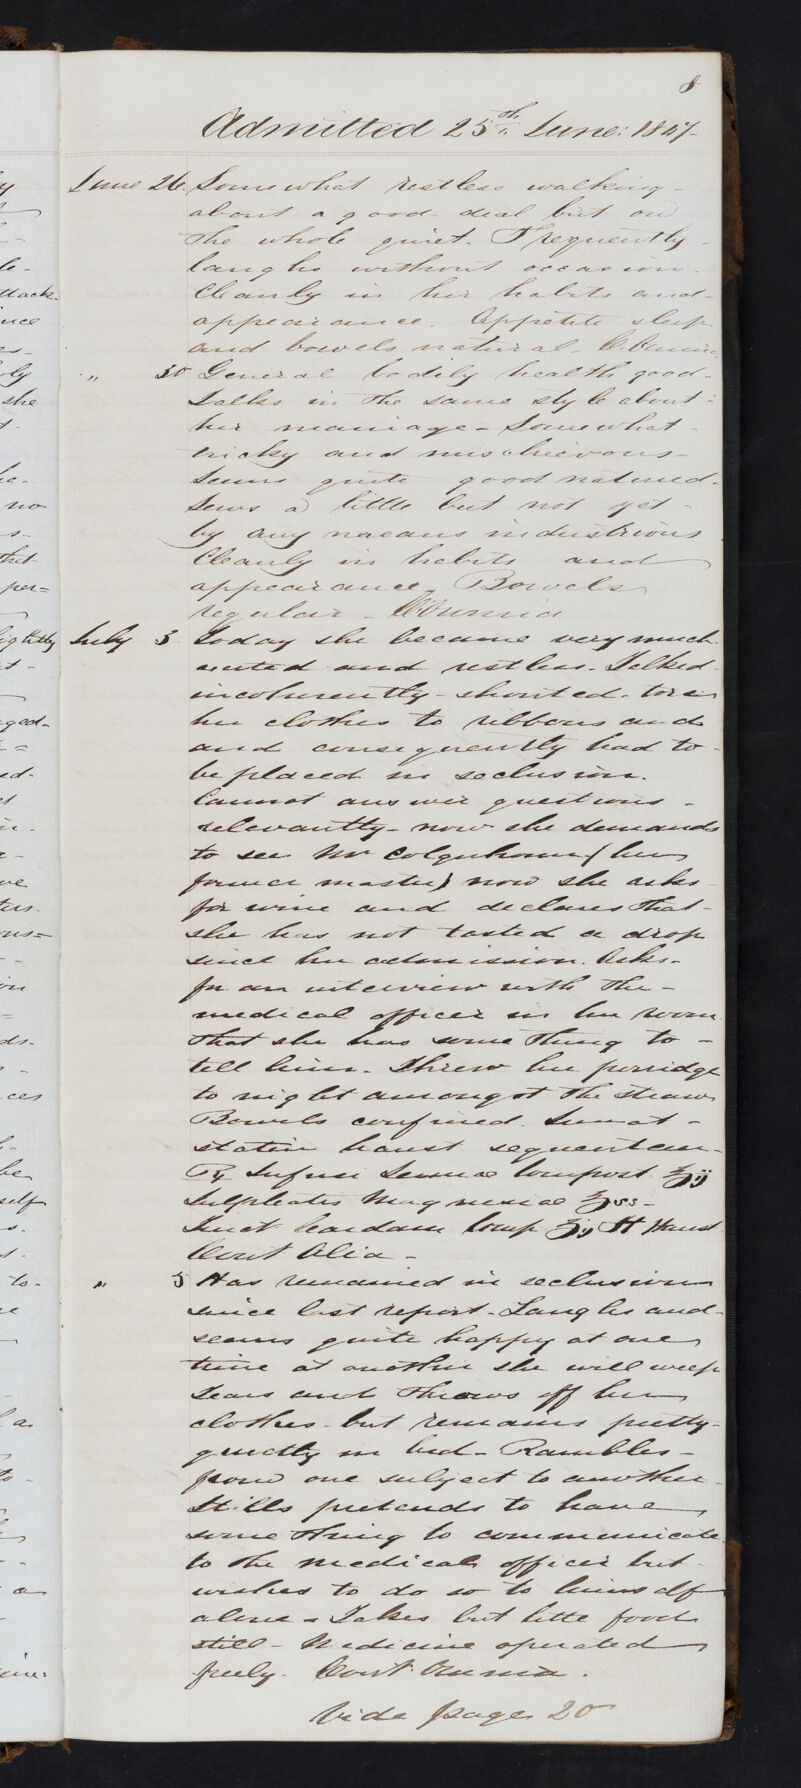 8
Admitted 25th June: 1847
June 26. Somewhat restless walking
about a good deal but on
the whole quiet. Frequently
laughs without occasion.
Cleanly in her habits and
appearance. Appetite sleep
and bowels natural -
" 30 General bodily health good.
Talks in the same style about
her marriage - Somewhat
tricky and mischievous -
Seems quite good natured.
Sews a little but not yet
by any means industrious
Cleanly in habits and
appearance. Bowels
regular -
July 3 Today she became very much
excited and restless. Talked
incoherently - shouted - tore
her clothes to ribbons and
and consequently had to
be placed in seclusion.
Cannot answer questions -
relevantly - now she demands
to see Mr Colquhoun (her
former master) now she asks
for wine and declares that
she has not tasted a drop
since her admission. Asks
for an interview with the
medical officer in her room
that she has some thing to
tell him. Threw her porridge
to night amongst the straw
Bowels confined. Sumat
statim haust sequentem
Rx Infusi Sennae Compost ℥ij
Sulphatis Magnesiae ℥ss -
Tinct Cardam Comp ʒij ft Haust
Cont Alia -
" 5 Has remained in seclusion
since last report - Laughs and
seems quite happy at one
time at another she will weep
Tears and throws off her
clothes - but remains pretty
quietly in bed - Rambles
from one subject to another
Stills pretends to have
some thing to communicate
to the medical officer but
wishes to do so to himself
alone - Takes but litte food
still - Medicine operated
freely. Cont Omnia.
Vide page 20